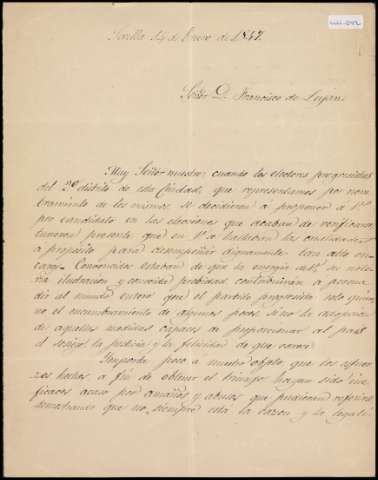 Sevilla 14 de Enero de 1847.
Señor D. Francisco de Lujan.
Muy Señor nuestro: cuando los electores progresistas
del 2º distrito de esta Ciudad, que representamos por nom
bramiento de los mismos, se decidieron á proponer á V.
por candidato en las elecciones que acaban de verificarse
tuvieron presente que en V. se hallaban las cualidades
á propósito para desempeñar dignamente tan alto en
cargo. Convencidos estaban de que la energía de V. su noto
ria ilustracion y conocida probidad contribuirian á persua
dir al mundo entero que el partido progresista solo quiere
no el encumbramiento de algunos pocos, sino la adopcion
de aquellas medidas capaces de proporcionar al pais
el sosiego, la justicia y la felicidad de que carece.
Importa poco á nuestro objeto, que los esfuer
zos hechos á fin de obtener el triunfo hayan sido ine
ficaces acaso por amaños y abusos que pudieran referirse
mostramos que no, siempre está la razon y la legali